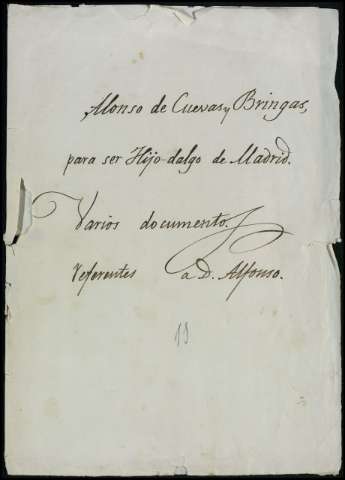 Alonso de Cuevas y Bringas,
para ser Hijo-dalgo de Madrid.
Varios documentos
referentes a D. Alfonso.
19